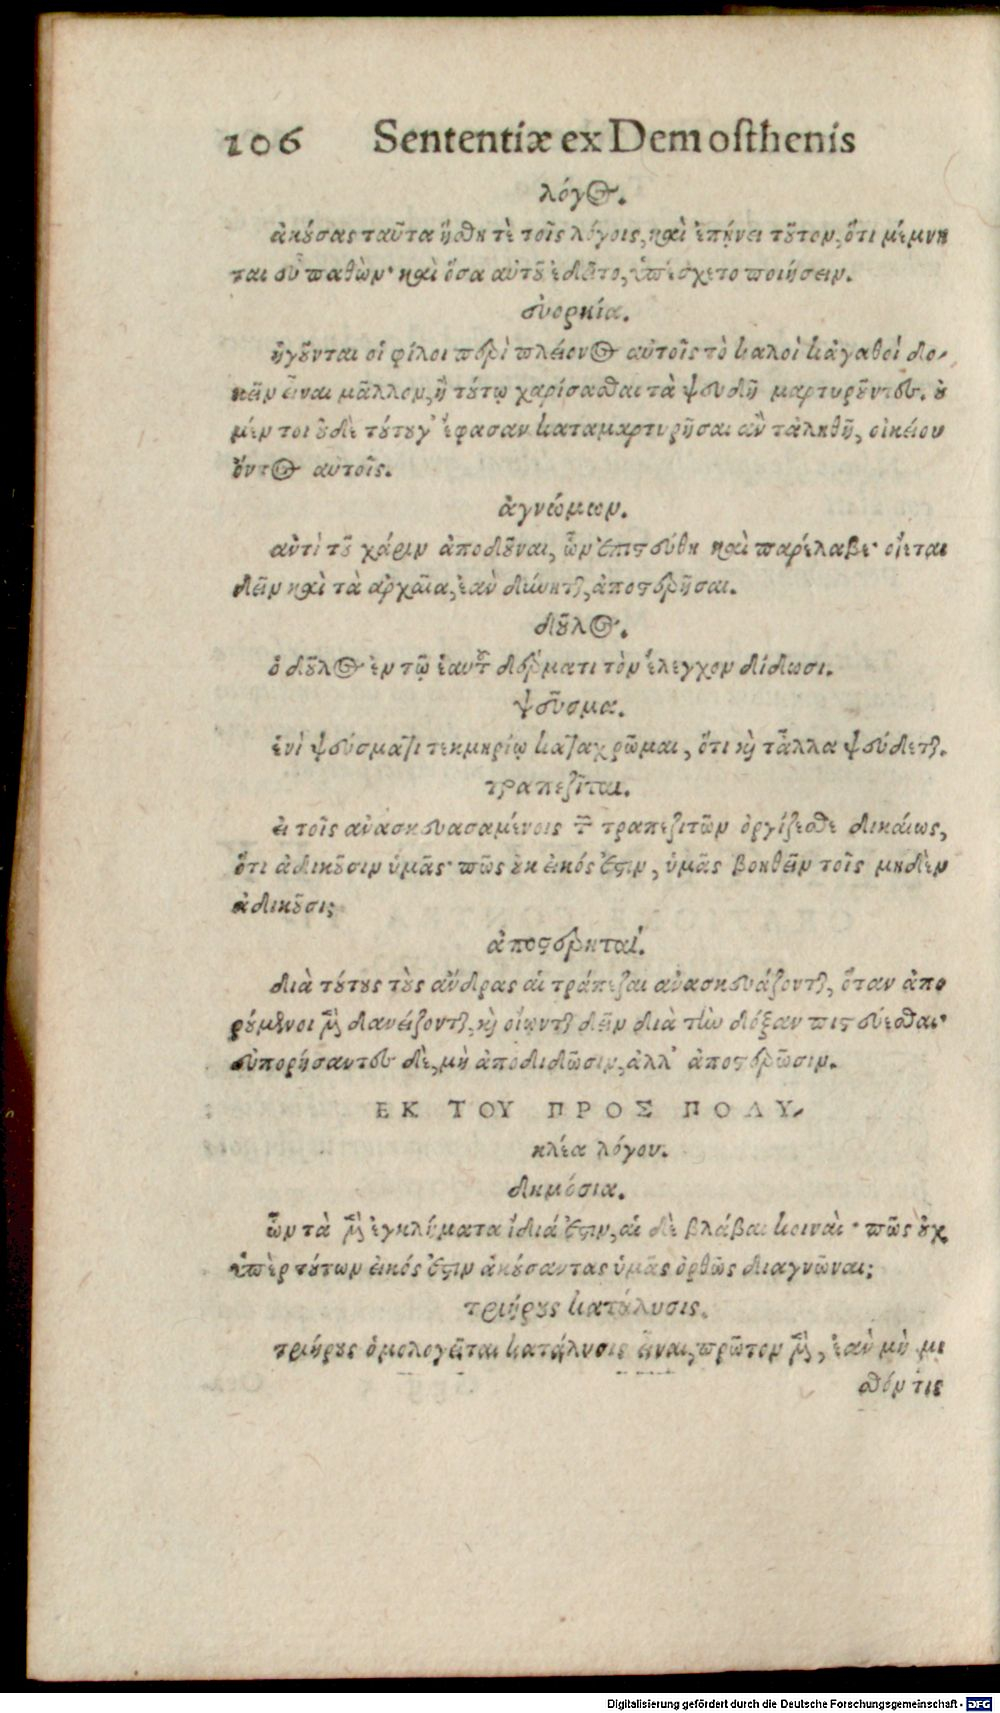 106 Sententiæ ex Demosthenis
λόγος.
ἀκούσας ταῦτα ἥσθη τὲ τοῖς λόγοις, καὶ ἐπῄνει τοῦτον, ὅτι μέμνη
ται εὖ παθὼν· καὶ ὅσα αὐτοῦ ἐδεῖτο, ὑπέσχετο ποιήσειν.
συνορκία.
ἡγοῦνται οἱ φίλοι περὶ πλείονος αὐτοῖς τὸ καλοὶ κἀγαθοὶ δο-
κεῖν εἶναι μᾶλλον, ἢ τούτῳ χαρίσασθαι τὰ ψευδῆ μαρτυροῦντες. οὐ
μέν τοι οὐδὲ τούτου γ' ἔφασαν καταμαρτυρῆσαι ἂν τἀληθῆ, οἰκείου
ὄντος αὐτοῖς.
ἀγνώμων.
ἀντὶ τοῦ χάριν ἀποδοῦναι, ὧν ἐπιστεύθη καὶ παρέλαβε· οἴεται
δεῖν καὶ τὰ ἀρχαῖα, ἐὰν δύνηται, ἀποστερῆσαι.
δοῦλος.
ὁ δοῦλος ἐν τῷ ἑαυτοῦ δέρματι τὸν ἔλεγχον δίδωσι.
ψεῦσμα.
ἑνὶ ψεύσματι τεκμηρίῳ καταχρῶμαι, ὅτι καὶ τἆλλα ψεύδεται.
τραπεζῖται.
εἰ τοῖς ἀνασκευασαμένοις τῶν τραπεζιτῶν ὀργίζεσθε δικαίως,
ὅτι ἀδικοῦσιν ὑμᾶς· πῶς οὐκ εἰκός ἐστιν, ὑμᾶς βοηθεῖν τοῖς μηδὲν
ἀδικοῦσι;
ἀποστερηταί.
διὰ τούτους τοὺς ἄνδρας αἱ τράπεζαι ἀνασκευάζονται, ὅταν ἀπο
ρούμενοι μὲν δανείζονται, καὶ οἴωνται δεῖν διὰ τὴν δόξαν πιστεύεσθαι·
εὐπορήσαντες δὲ, μὴ ἀποδιδῶσιν, ἀλλ' ἀποστερῶσιν.
ΕΚ ΤΟΥ ΠΡΟΣ ΠΟΛΥ-
κλέα λόγου.
δημόσια.
ὧν τὰ μὲν ἐγκλήματα ἴδιά ἐστιν, αἱ δὲ βλάβαι κοιναὶ· πῶς οὐχ
ὑπὲρ τούτων εἰκός ἐστιν ἀκούσαντας ὑμᾶς ὀρθῶς διαγνῶναι;
τριήρους κατάλυσις.
τριήρους ὁμολογεῖται κατάλυσις εἶναι, πρῶτον μὲν, ἐὰν μὴ μι
σθόν τις
Digitalisierung gefördert durch die Deutsche Forschungsgemeinschaft - DFG